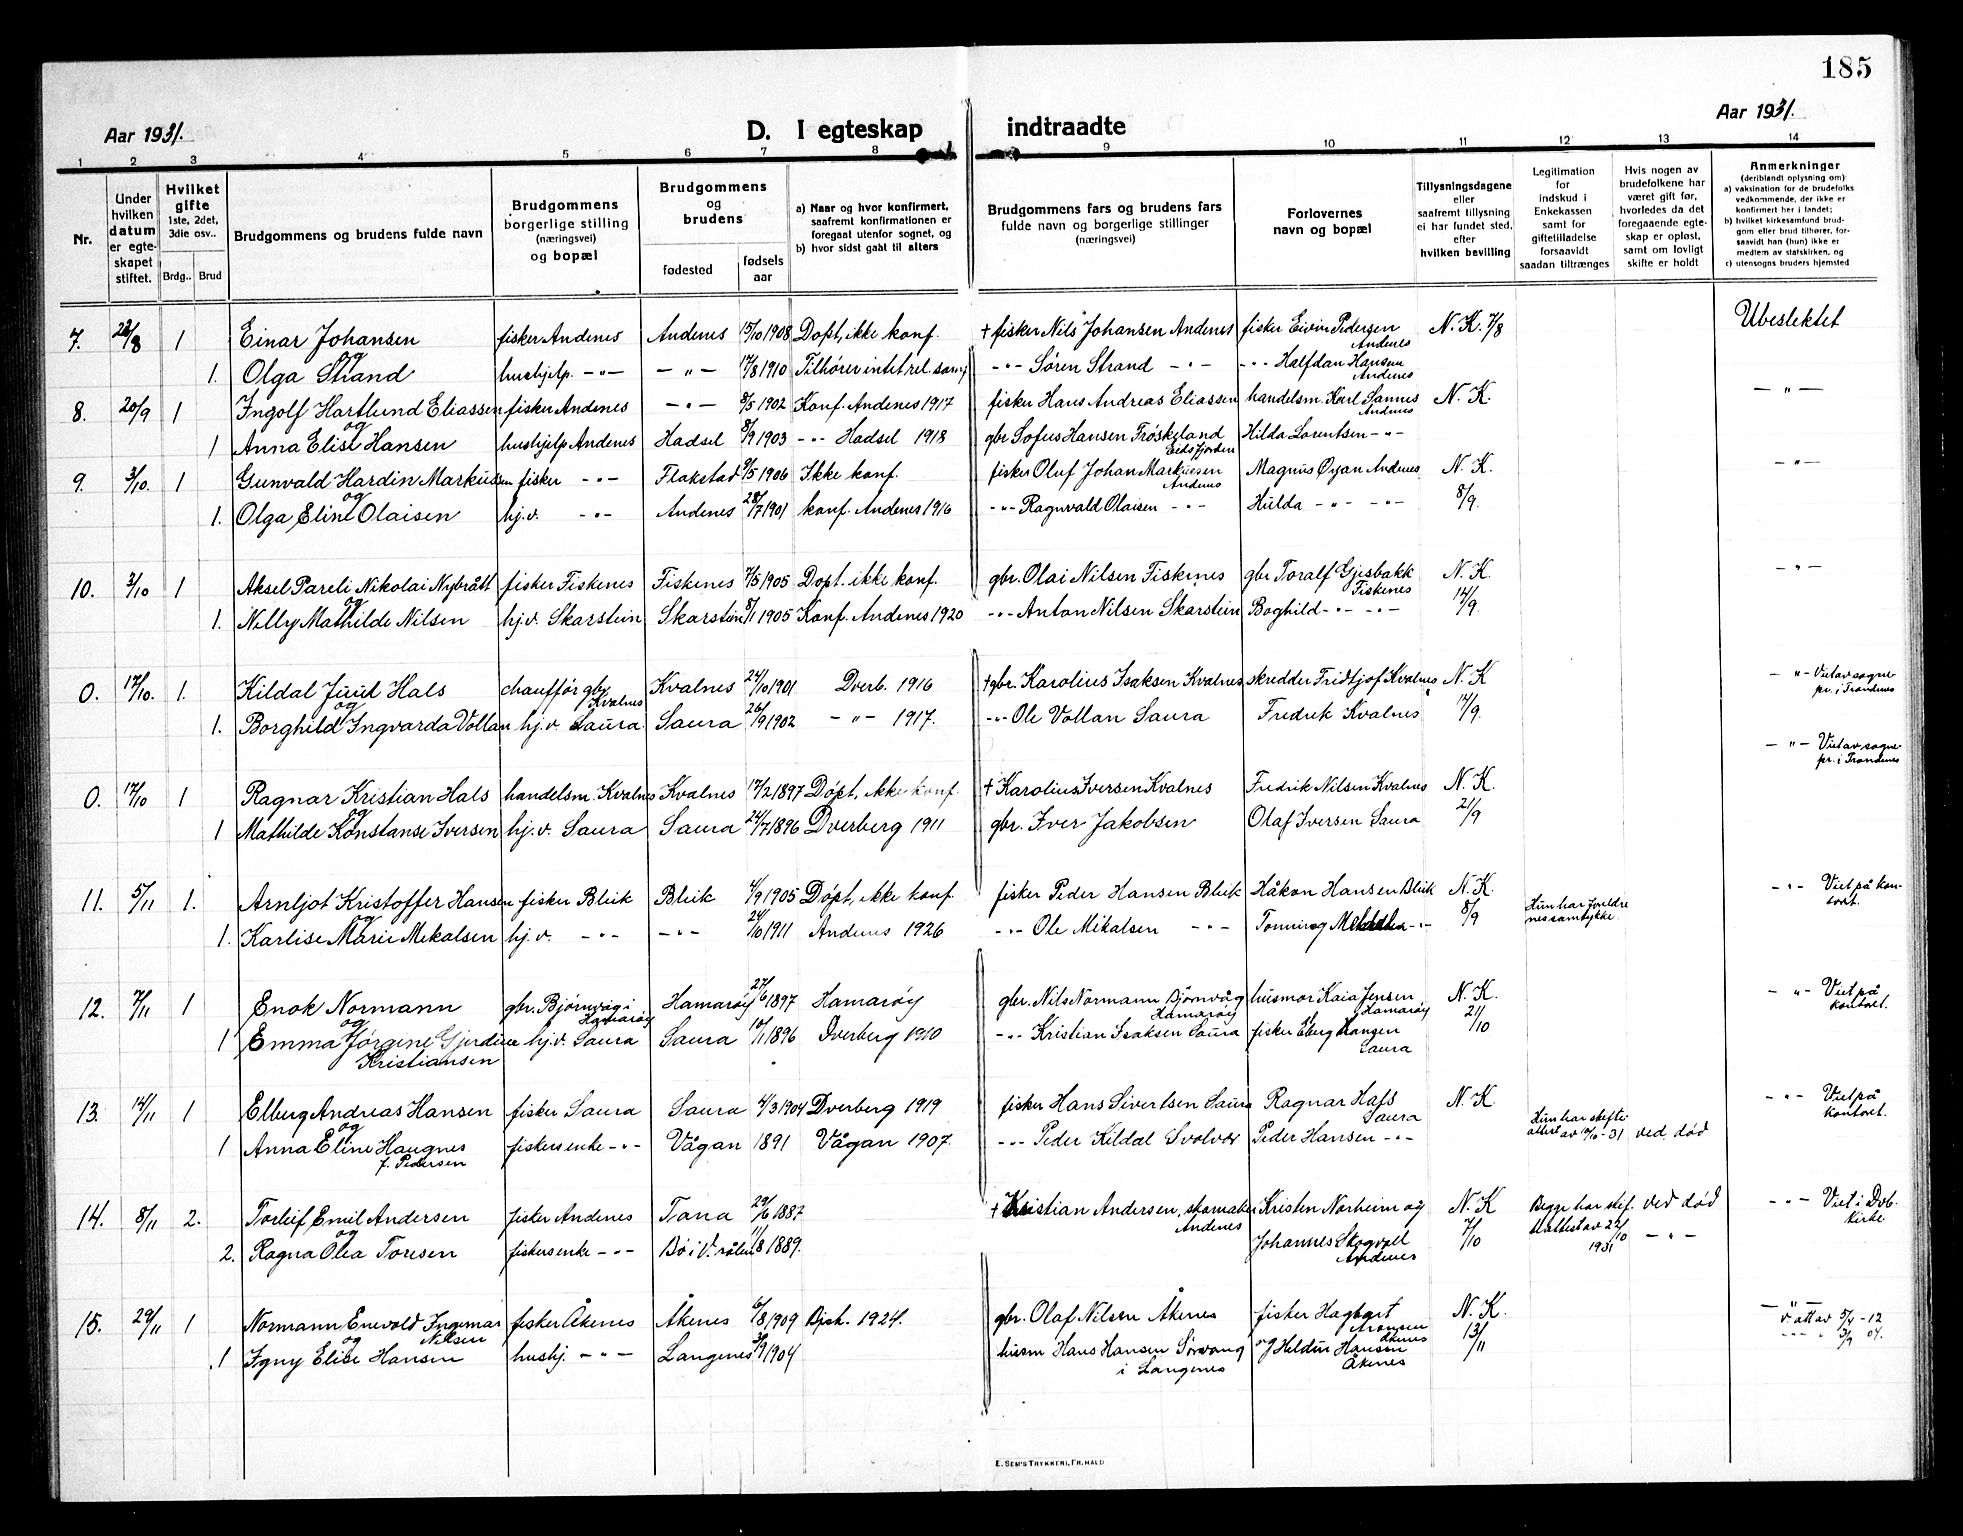 185
Aar 1931.
D. I egteskap indtraadte
Aar 1931.
1 2 3 4 5 6 7 8 9 10 11 12 13 14
Nr.
Under hvilken datum er egteskapet stiftet.
Hvilket gifte 1ste, 2det, 3die osv..
Brdg.. Brud
Brudgommens og brudens fulde navn
Brudgommens borgerlige stilling (næringsvei) og bopæl
Brudgommens og brudens
fødested
fødsels aar
a) Naar og hvor konfirmert, saafremt konfirmationen er foregaat utenfor sognet, og
b) hvor sidst gaat til alters
Brudgommens fars og brudens fars fulde navn og borgerlige stillinger (næringsvei)
Forlovernes navn og bopæl
Tillysningsdagene eller saafremt tillysning ei har fundet sted, efter hvilken bevilling
Legitimation for indskud i Enkekassen samt for giftetilladelse forsaavidt saadan tiltrænges
Hvis nogen av brudefolkene har været gift før, hvorledes da det foregaaende egteskap er opløst, samt om lovligt skifte er holdt
Anmerkninger (deriblandt oplysning om)
a) vaksination for de brudefolks vedkommende, der ikke er konfirmert her i landet;
b) hvilket kirkesamfund brudgom eller brud tilhører, forsaavidt han (hun) ikke er medlem av statskirken, og
c) utensogns bruders hjemsted
7. 22/8 1 Einar Johansen fisker Andenes Andenes 15/10 1908 Døpt, ikke konf. † fisker Nils Johansen Andenes fisker Eivin Pedersen Andenes N. K. 7/8 Ubeslektet
og
1. Olga Strand hushjelp. -"- -"- 17/8 1910 Tilhører intet rel. samf -"- Søren Strand -"- -"- Halfdan Hansen Andenes
8. 20/9 1 Ingolf Hartlund Eliassen fisker Andenes -"- 8/5 1902 Konf. Andenes 1917 fisker Hans Andreas Eliassen handelsm. Karl Sannes Andenes N. K. -"-
og
1 Anna Elise Hansen hushjelp Andenes Hadsel 8/9 1903 -"- Hadsel 1918 gbr Sofus Hansen Frøskeland Eidsfjorden Hilda Lorentsen -"-
9. 3/10. 1 Gunvald Hardin Markussen fisker -"- Flakstad 9/5 1906 Ikke konf. fisker Oluf Johan Markussen Andenes Magnus Øyan Andenes N. K. -"-
og
1. Olga Eline Olaisen hj.v. -"- Andenes 28/7 1901 konf. Andenes 1916 -"- Ragnvald Olaisen -"- Hulda -"- -"- 8/9.
10. 3/10 1 Aksel Pareli Nikolai Nybrått fisker Fiskenes Fiskenes 7/5 1905 Døpt. ikke konf. gbr. Olai Nilsen Fiskenes gbr Toralf Gjesbakk Fiskenes N. K. -"-
og
1. Nelly Mathilde Nilsen hj.v. Skarstein Skarstein 8/1 1905 Konf. Andenes 1920 -"- Anton Nilsen Skarstein Boghild -"- -"- 14/9.
0. 17/10. 1. Kildal Juul Hals chaufför gbr Kvalnes Kvalnes 24/10 1901 Dverb. 1916 † gbr. Karolius Isaksen Kvalnes skredder Fridtjof Kvalnes N. K -"- Viet av sogne-
pr. i Trondenes
og
1. Borghild Ingvarda Vollan hj.v. Saura Saura 26/9 1902 -"- 1917. -"- Ole Vollan Saura Fredrik Kvalnes 17/9.
-"- Viet av sogne-
pr. i Trondenes
0. 17/10 1 Ragnar Kristian Hals handelsm. Kvalnes Kvalnes 17/2 1897 Døpt, ikke konf. † Karolius Iversen Kvalnes Fredrik Nilsen Kvalnes N. K.
og
1 Mathilde Konstanse Iversen hj.v. Saura Saura 24/7 1896 Dverberg 1911 gbr. Iver Jakobsen Olaf Iversen Saura 21/9
11. 5/11 1. Arnljot Kristoffer Hansen fisker Bleik Bleik 4/9 1905 Døpt, ikke konf. fisker Peder Hansen Bleik Håkon Hansen Bleik N. K. Hun har foreldre
nes samtykke. -"- Viet på kon-
toret.
og
1. Karlise Marie Mekalsen hj.v. -"- -"- 24/10 1911 Andenes 1926 -"- Ole Mikalsen -"- 8/9
12. 7/11 1 Enok Normann gbr. Bjørnvåg i Hamarøy Hamarøy 27/6 1897 Hamarøy gbr. Nils Normann Bjørnvåg Hamarøy husmor Kaia Jensen Hamarøy N. K. -"- Viet på
kontoret.
og
1 Emma Jørgine Gjerdine Kristiansen hj.v. Saura Saura 10/1 1896 Dverberg 1910 -"- Kristian Isaksen Saura fisker Eberg Hansen Saura 21/10
13. 14/11 1 Elberg Andreas Hansen fisker Saura Saura 4/3 1904 Dverberg 1919 fisker Hans Sivertsen Saura Ragnar Hals Saura N. K -"- Viet på
kontoret.
og
1 Anna Eline Haugnes f. Pedersen fiskersenke -"- Vågan 1891 Vågan 1907. -"- Peder Kildal Svolvær Peder Hansen -"- Hun har skifte-
attest av 10/10-31 ved død
14. 8/11 2. Torleif Emil Andersen fisker Andenes Tana 29/6 1887 † Kristian Andersen, skomaker Andenes Kristen Norheim og N. K Begge har skif-
teattest av 22/10
1931 ved død -"- Viet i Dvb.
kirke
og
2. Ragna Olea Toresen fiskersenke -"- Bø i V.rålen 11/8 1889. Johannes Skogvoll Andenes 7/10 -"-
15. 29/11 1 Normann Enevold Ingemar Nilsen fisker Åkenes Åkenes 6/8 1909 Bjsk. 1924. gbr. Olaf Nilsen Åkenes fisker Hagbart Aronsen Åkenes N. K. -"-
v. att av 5/4-12
og
1 Igny Elise Hansen hushj. -"- Langenes 3/9 1904 husm Hans Hansen Sørvang i Langenes Hansen Åkenes 13/11 -"- 3/9 04.
E. SEM'S TRYKKERI, FR. HALD